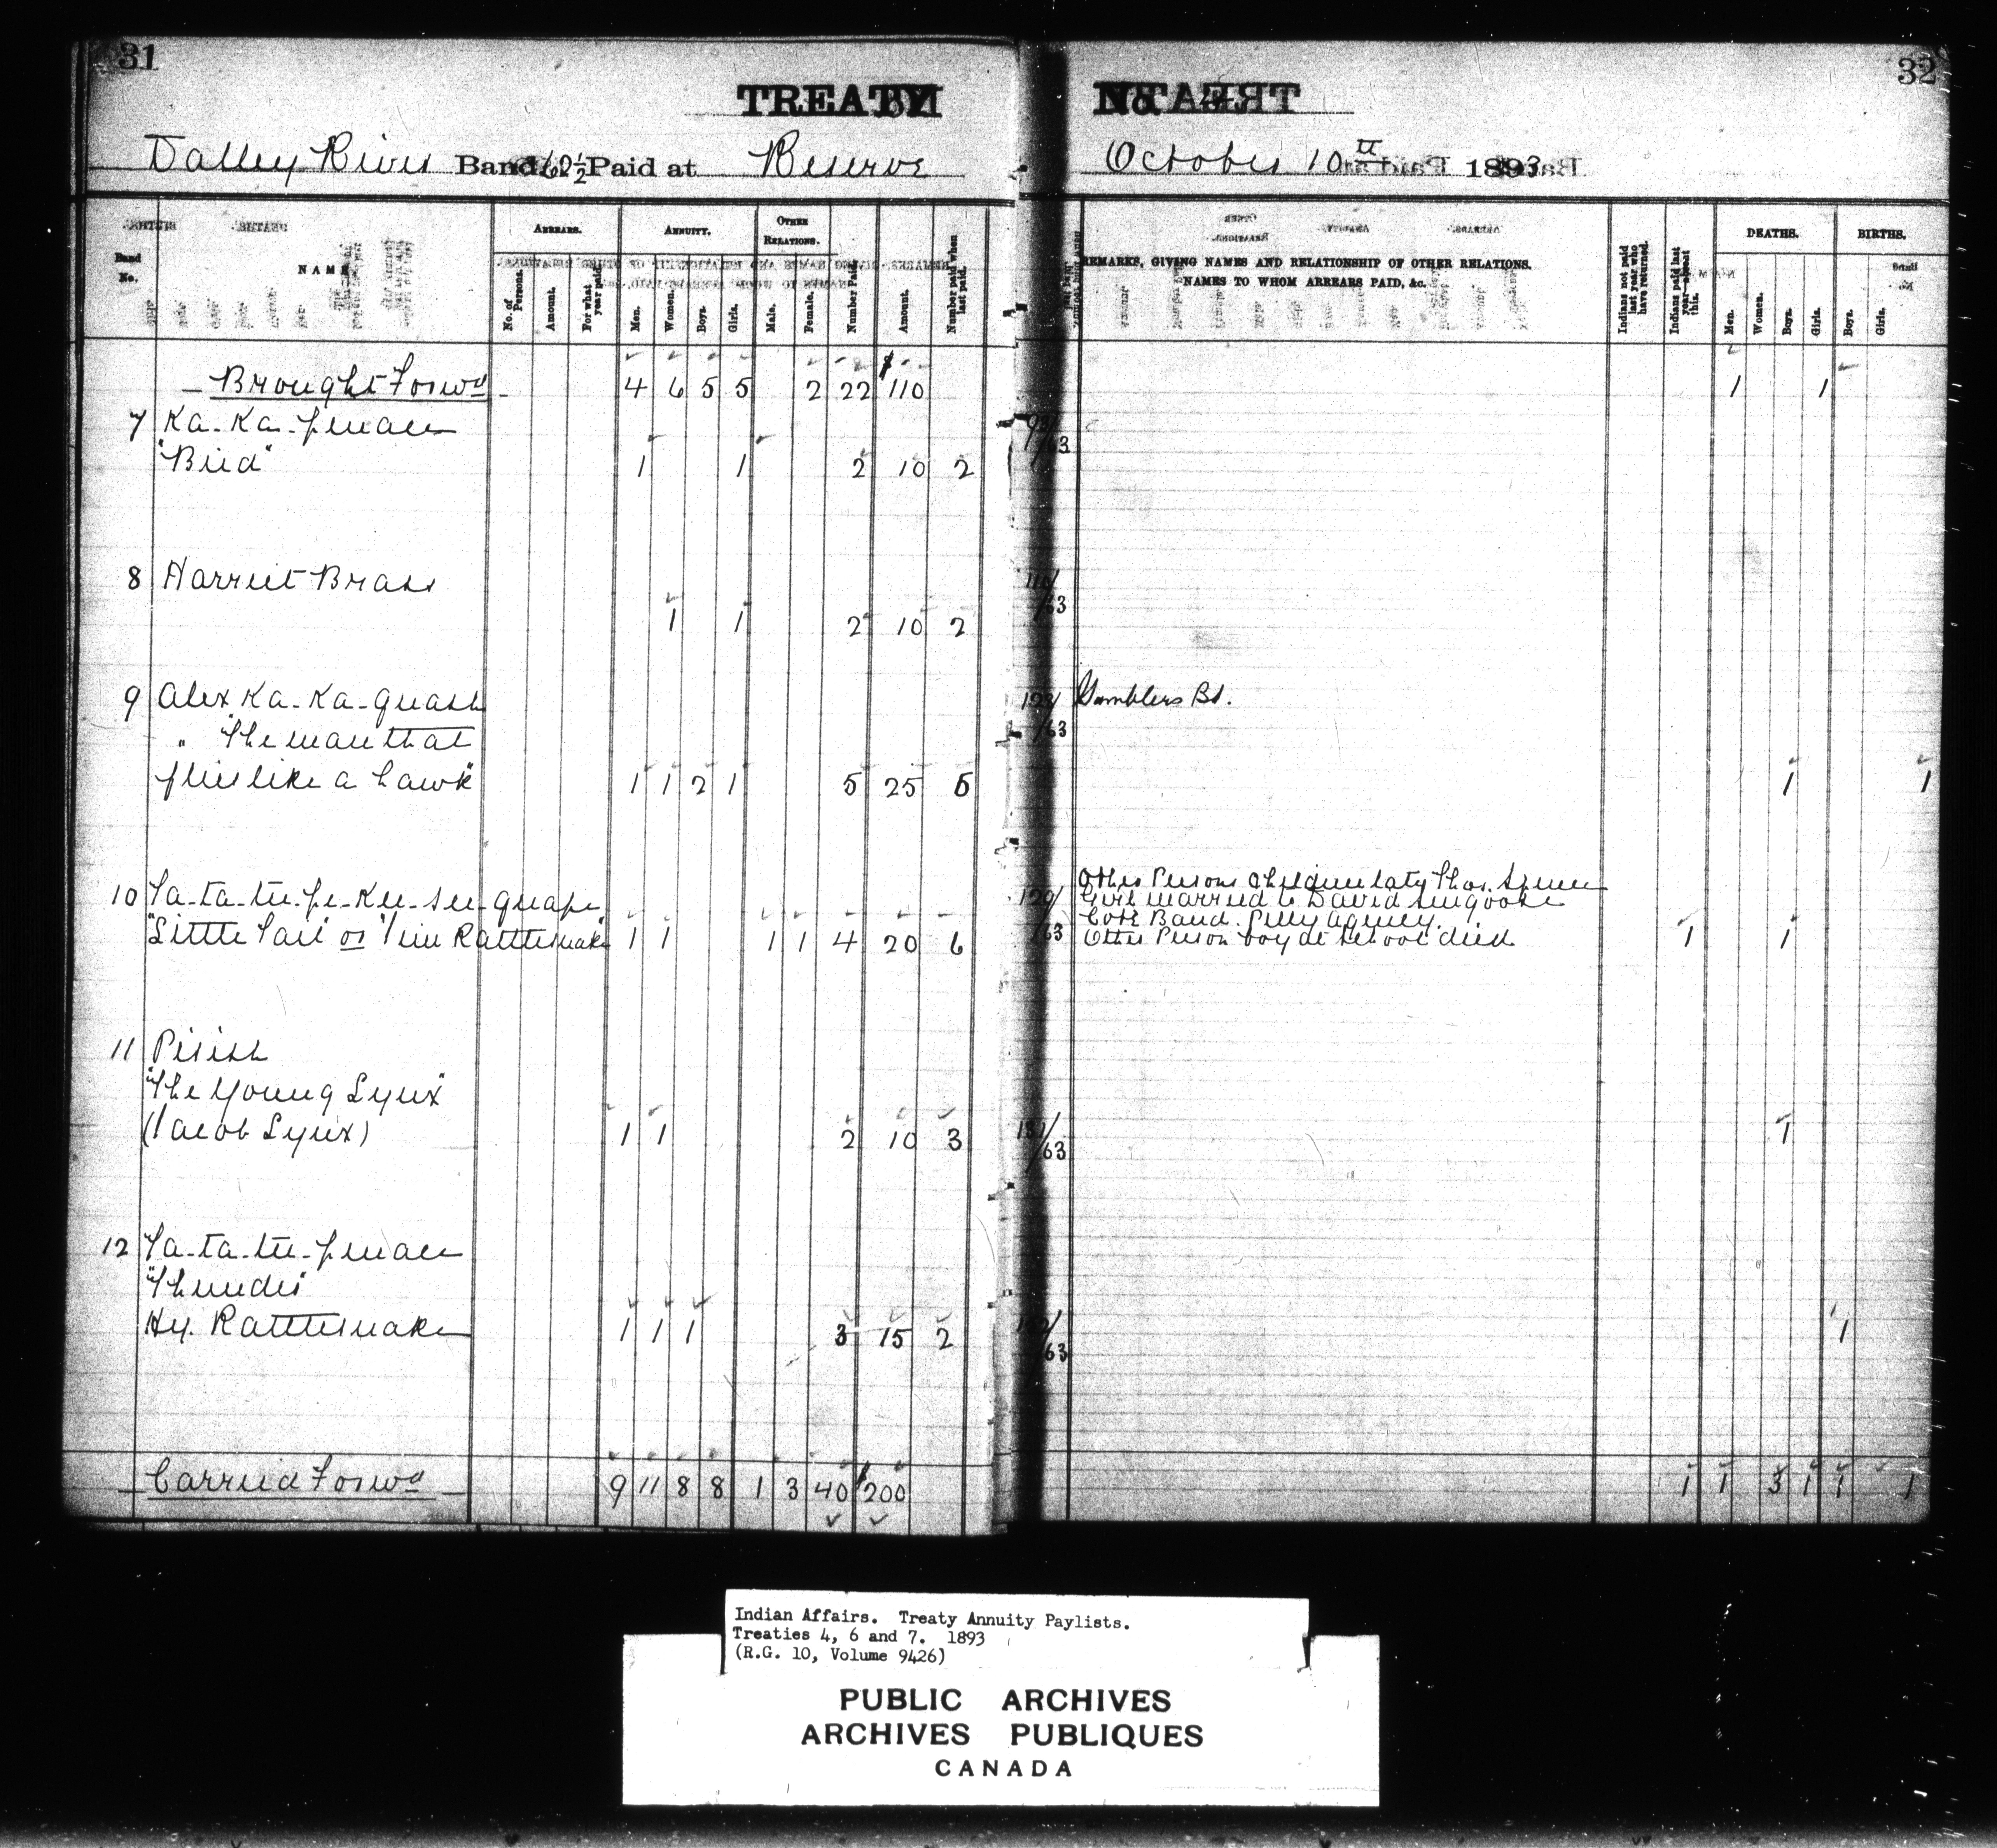 31
32
TREATY
No. 4
Valley River Band 62½ Paid at Reserve
October 10th 1893
Band No.
NAME
ARREARS.
No. of Persons.
Amount.
For what year paid.
ANNUITY.
Men.
Women.
Boys.
Girls.
OTHER RELATIONS.
Male.
Female.
Number Paid.
Amount.
Number paid when last paid.
REMARKS, GIVING NAMES AND RELATIONSHIP OF OTHER RELATIONS.
NAMES TO WHOM ARREARS PAID, &c.
Indians not paid last year who have returned.
Indians paid last year—absent this.
DEATHS.
Men.
Women.
Boys.
Girls.
BIRTHS.
Boys.
Girls.
Brought Forwd 4 6 5 5 2 22 $110 1 1
7 Ka-Ka-penace
"Bird" 1 1 2 10 2
8 Harriet Brass
1 1 2 10 2
9 Alex Ka-Ka-quash Gamblers Bd.
" The man that
flies like a hawk" 1 1 2 1 5 25 5 1 1
10 Ta-ta-te-pe-Kee-see-quape
"Little Tail" or Jim Rattlesnake 1 1 1 1 4 20 6 1 1
Other Persons Children late Thos. Spence
Girl married to David Seegoose
Cote Band. Pelly Agency.
Other Person boy at school died
11 Pisish
"The Young Lynx"
(Jacob Lynx) 1 1 2 10 3 1
12 Ta-ta-te-penace
"Thunder"
Hy. Rattlesnake 1 1 1 3 15 2 1
Carried Forwd 9 11 8 8 1 3 40 $200 1 1 3 1 1 1
Indian Affairs. Treaty Annuity Paylists.
Treaties 4, 6 and 7. 1893
(R.G. 10, Volume 9426)
PUBLIC ARCHIVES
ARCHIVES PUBLIQUES
CANADA